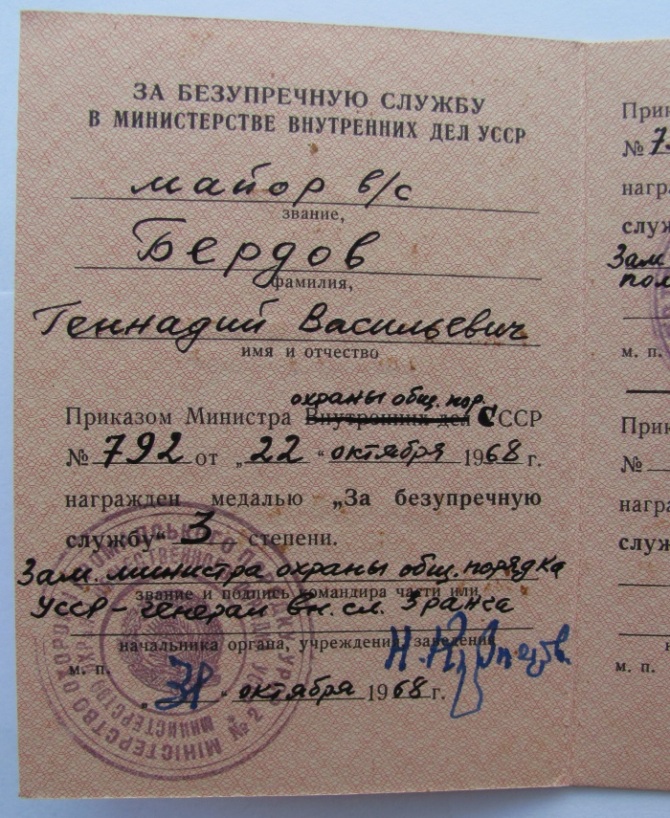 ЗА БЕЗУПРЕЧНУЮ СЛУЖБУ
В МИНИСТЕРСТВЕ ВНУТРЕННИХ ДЕЛ УССР
майор в/с
звание,
Бердов
фамилия,
Геннадий Васильевич
имя и отчество
охраны общ. пор.
Приказом Министра Внутренних дел СССР
№ 792 от „22“ октября 1968 г.
награжден медалью „За безупречную
службу“ 3 степени.
Зам. министра охраны общ. порядка
звание и подпись командира части или
УССР - генерал вн. сл. 3 ранга
начальника органа, учреждения, заведения
м. п.
„31“ октября 1968 г.
Прик
№ 7
нагр
служ
Зам
пол
м. п.
Прик
№
нагр
служ
м. п.